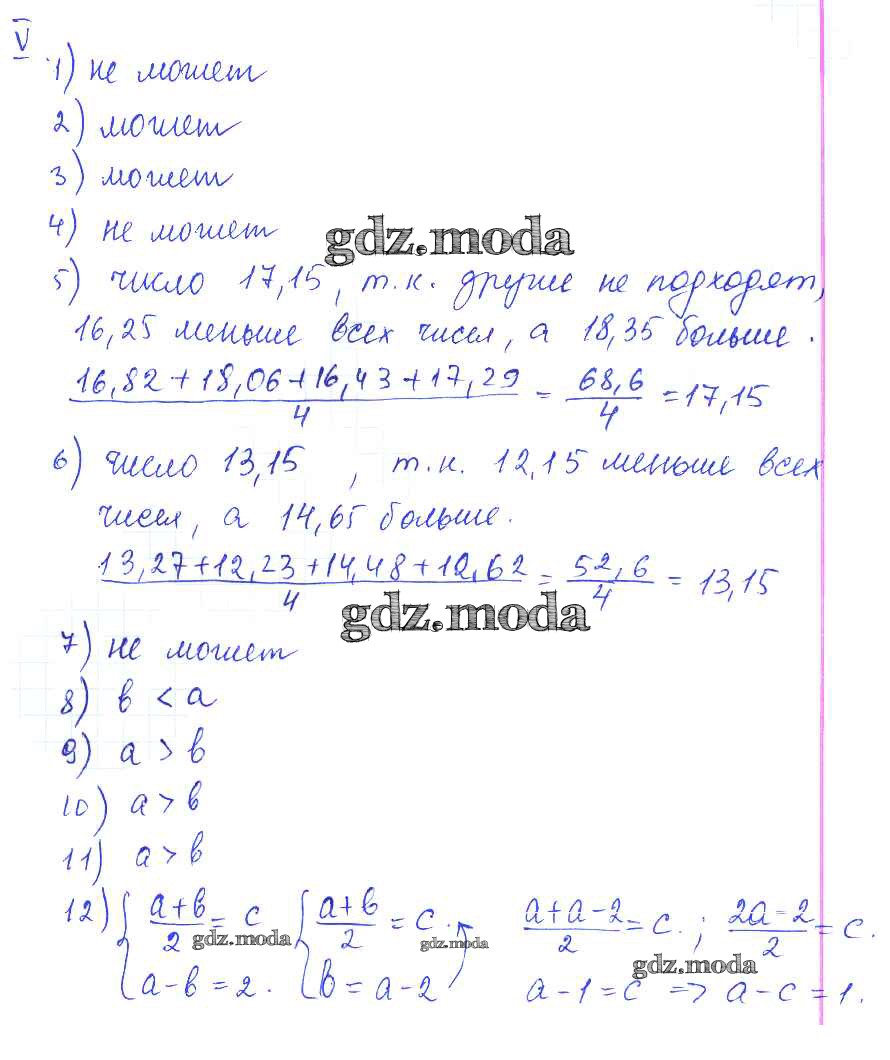 V
1) не может
2) может
3) может
4) не может
gdz.moda
5) число 17,15, т.к. другие не подходят,
16,25 меньше всех чисел, а 18,35 больше.
(16,82+18,06+16,43+17,29)/4 = 68,6/4 = 17,15
6) число 13,15, т.к. 12,15 меньше всех
чисел, а 14,65 больше.
(13,27+12,23+14,48+12,62)/4 = 52,6/4 = 13,15
gdz.moda
7) не может
8) в < а
9) а > в
10) а > в
11) а > в
12) { (а+в)/2 = с { (а+в)/2 = с. (а+а-2)/2 = с. ; (2а-2)/2 = с.
gdz.moda gdz.moda gdz.moda
а-в=2. в=а-2 а-1=с => а-с=1.